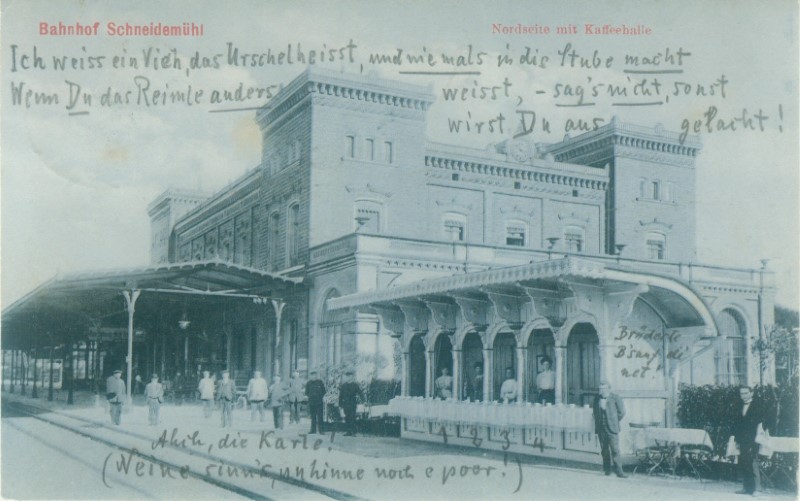 Bahnhof Schneidemühl
Nordseite mit Kaffeehalle
Ich weiss ein Vieh, das Urschel heisst, und niemals in die Stube macht
Wenn Du das Reimle anderst weisst, - sag's nicht, sonst
wirst Du aus gelacht!
Brüderle
B'sauf di'
net!
1 2 3 4
die Karte!
(Weine sinn's, un hinne noch e poor!)